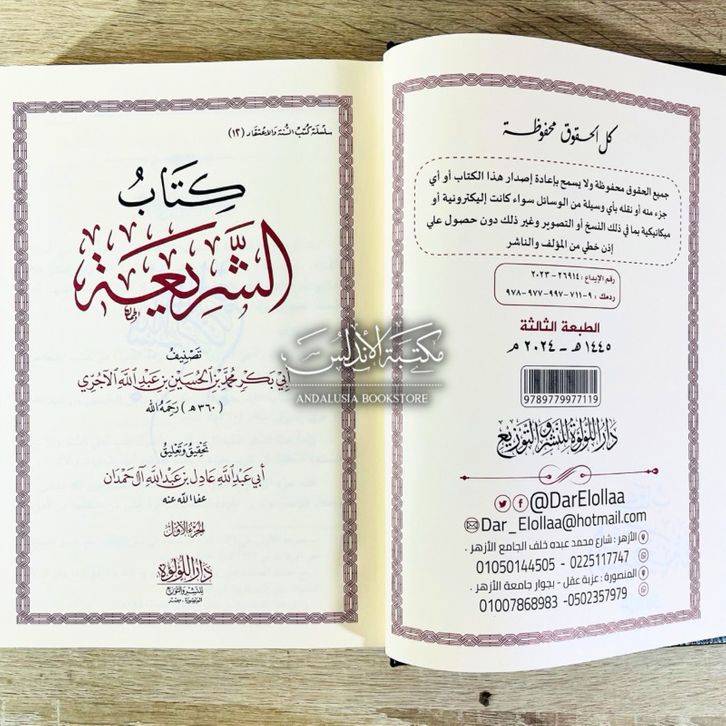 سلسلة كتب السنة والاعتقاد (١٣)
كِتَابُ
الشَّرِيعَة
تَصْنِيفُ
أبي بكر محمد بن الحسين بن عبد الله الآجري
(٣٦٠ هـ) رحمه الله
تحقيق وتعليق
أبي عبد الله عادل بن عبد الله آل حمدان
عفا الله عنه
الجزء الأول
دار اللؤلؤة
للنشر والتوزيع
المنصورة - مصر
كل الحقوق محفوظة
جميع الحقوق محفوظة ولا يسمح بإعادة إصدار هذا الكتاب أو أي
جزء منه أو نقله بأي وسيلة من الوسائل سواء كانت إليكترونية أو
ميكانيكية بما في ذلك النسخ أو التصوير وغير ذلك دون حصول علي
إذن خطي من المؤلف والناشر
رقم الإيداع : ٢٦٩١٤ - ٢٠٢٣
ردمك : ٩-٧١١-٩٩٧-٩٧٧-٩٧٨
الطبعة الثالثة
١٤٤٥ هـ - ٢٠٢٤ م
9789779977119
دار اللؤلؤة للنشر والتوزيع
@DarElollaa
Dar_Elollaa@hotmail.com
الأزهر : شارع محمد عبده خلف الجامع الأزهر .
01050144505 - 0225117747
المنصورة : عزبة عقل - بجوار جامعة الأزهر .
01007868983 -0502357979
مكتبة الأندلس
ANDALUSIA BOOKSTORE